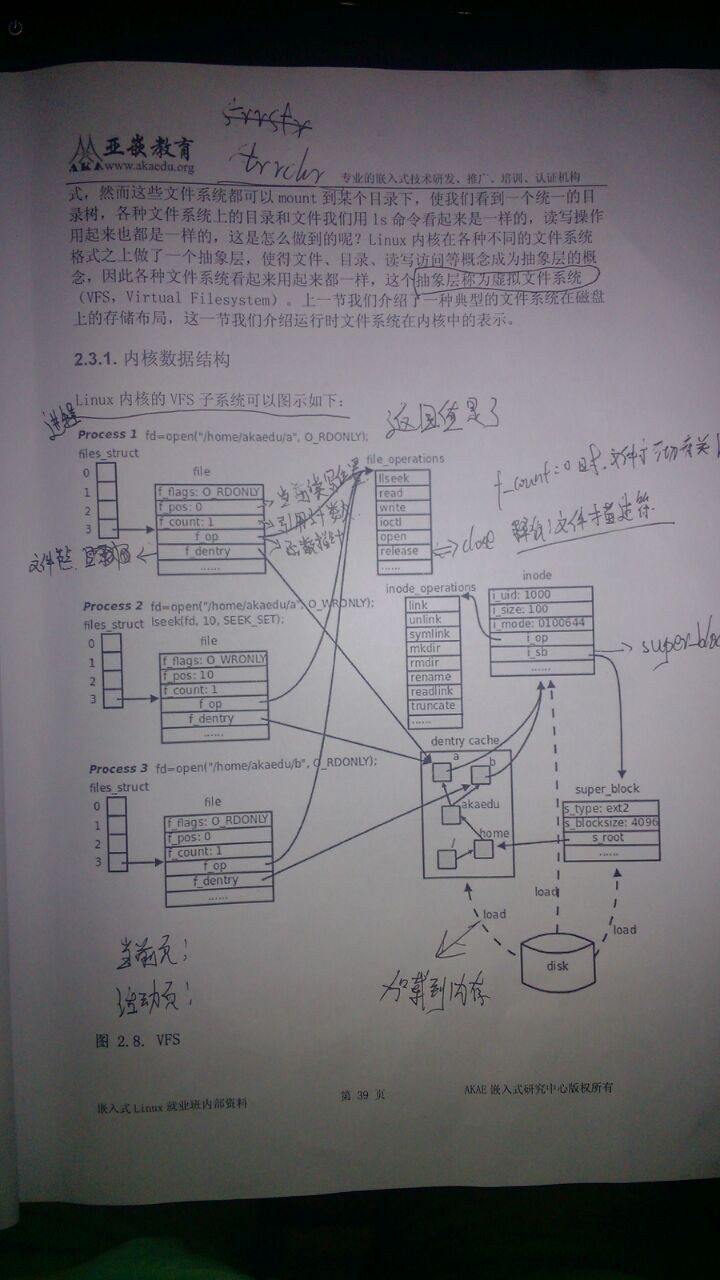 亚嵌教育
AKA
www.akaedu.org
专业的嵌入式技术研发、推广、培训、认证机构
式，然而这些文件系统都可以 mount 到某个目录下，使我们看到一个统一的目
录树，各种文件系统上的目录和文件我们用 ls 命令看起来是一样的，读写操作
用起来也都是一样的，这是怎么做到的呢？Linux 内核在各种不同的文件系统
格式之上做了一个抽象层，使得文件、目录、读写访问等概念成为抽象层的概
念，因此各种文件系统看起来用起来都一样，这个抽象层称为虚拟文件系统
（VFS，Virtual Filesystem）。上一节我们介绍了一种典型的文件系统在磁盘
上的存储布局，这一节我们介绍运行时文件系统在内核中的表示。
2.3.1. 内核数据结构
Linux 内核的 VFS 子系统可以图示如下：
进程
返回值是3
Process 1 fd=open("/home/akaedu/a", O_RDONLY);
files_struct
0
1
2
3
file
f_flags: O_RDONLY
f_pos: 0
f_count: 1
f_op
f_dentry
......
当前读写位置
引用计数
函数指针
file_operations
llseek
read
write
ioctl
open
release
......
close
f_count:0时,文件
释放文件描述符
Process 2 fd=open("/home/akaedu/a", O_WRONLY);
lseek(fd, 10, SEEK_SET);
files_struct
0
1
2
3
file
f_flags: O_WRONLY
f_pos: 10
f_count: 1
f_op
f_dentry
......
inode_operations
link
unlink
symlink
mkdir
rmdir
rename
readlink
truncate
......
inode
i_uid: 1000
i_size: 100
i_mode: 0100644
i_op
i_sb
......
super_bloc
Process 3 fd=open("/home/akaedu/b", O_RDONLY);
files_struct
0
1
2
3
file
f_flags: O_RDONLY
f_pos: 0
f_count: 1
f_op
f_dentry
......
dentry cache
a
b
akaedu
home
/
super_block
s_type: ext2
s_blocksize: 4096
s_root
......
load
load
load
disk
当前页;
活动页;
加载到内存
图 2.8. VFS
嵌入式 Linux 就业班内部资料
第 39 页
AKAE 嵌入式研究中心版权所有